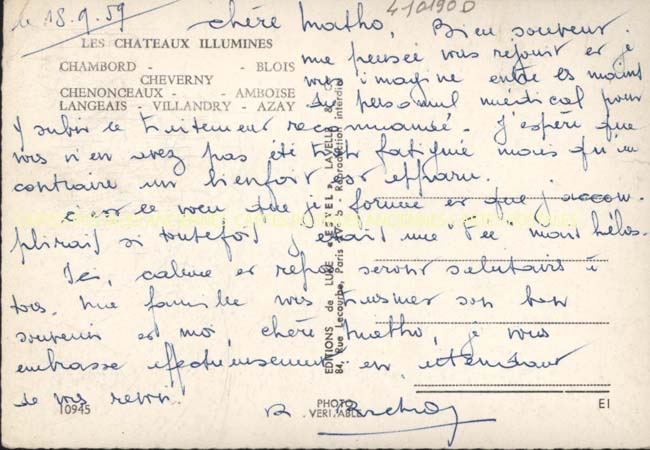 le 18.9.59
410190D
chère Matho, Bien souvent
LES CHATEAUX ILLUMINES
ma pensée vous rejoint et je
CHAMBORD - - BLOIS
vous imagine entre les mains
CHEVERNY
CHENONCEAUX - - AMBOISE
du personnel médical pour
LANGEAIS - VILLANDRY - AZAY
y subir le traitement recommandé. J'espère que
vous n'en avez pas été trop fatiguée mais qu'au
contraire un bienfait est apparu.
c'est le voeu que je forme et que j'accom-
plirais si toutefois j'étais une "Fée" mais hélas.
Ici, calme et repos seront salutaires à
tous. Ma famille vous transmet son bon
souvenir et moi, chère Matho, je vous
embrasse affectueusement en attendant
de vous revoir.
EDITIONS de LUXE « ESTEL », LAVELLE &
84, Rue Lecourbe, Paris - Reproduction interdite
10945
PHOTO
VERITABLE
EI